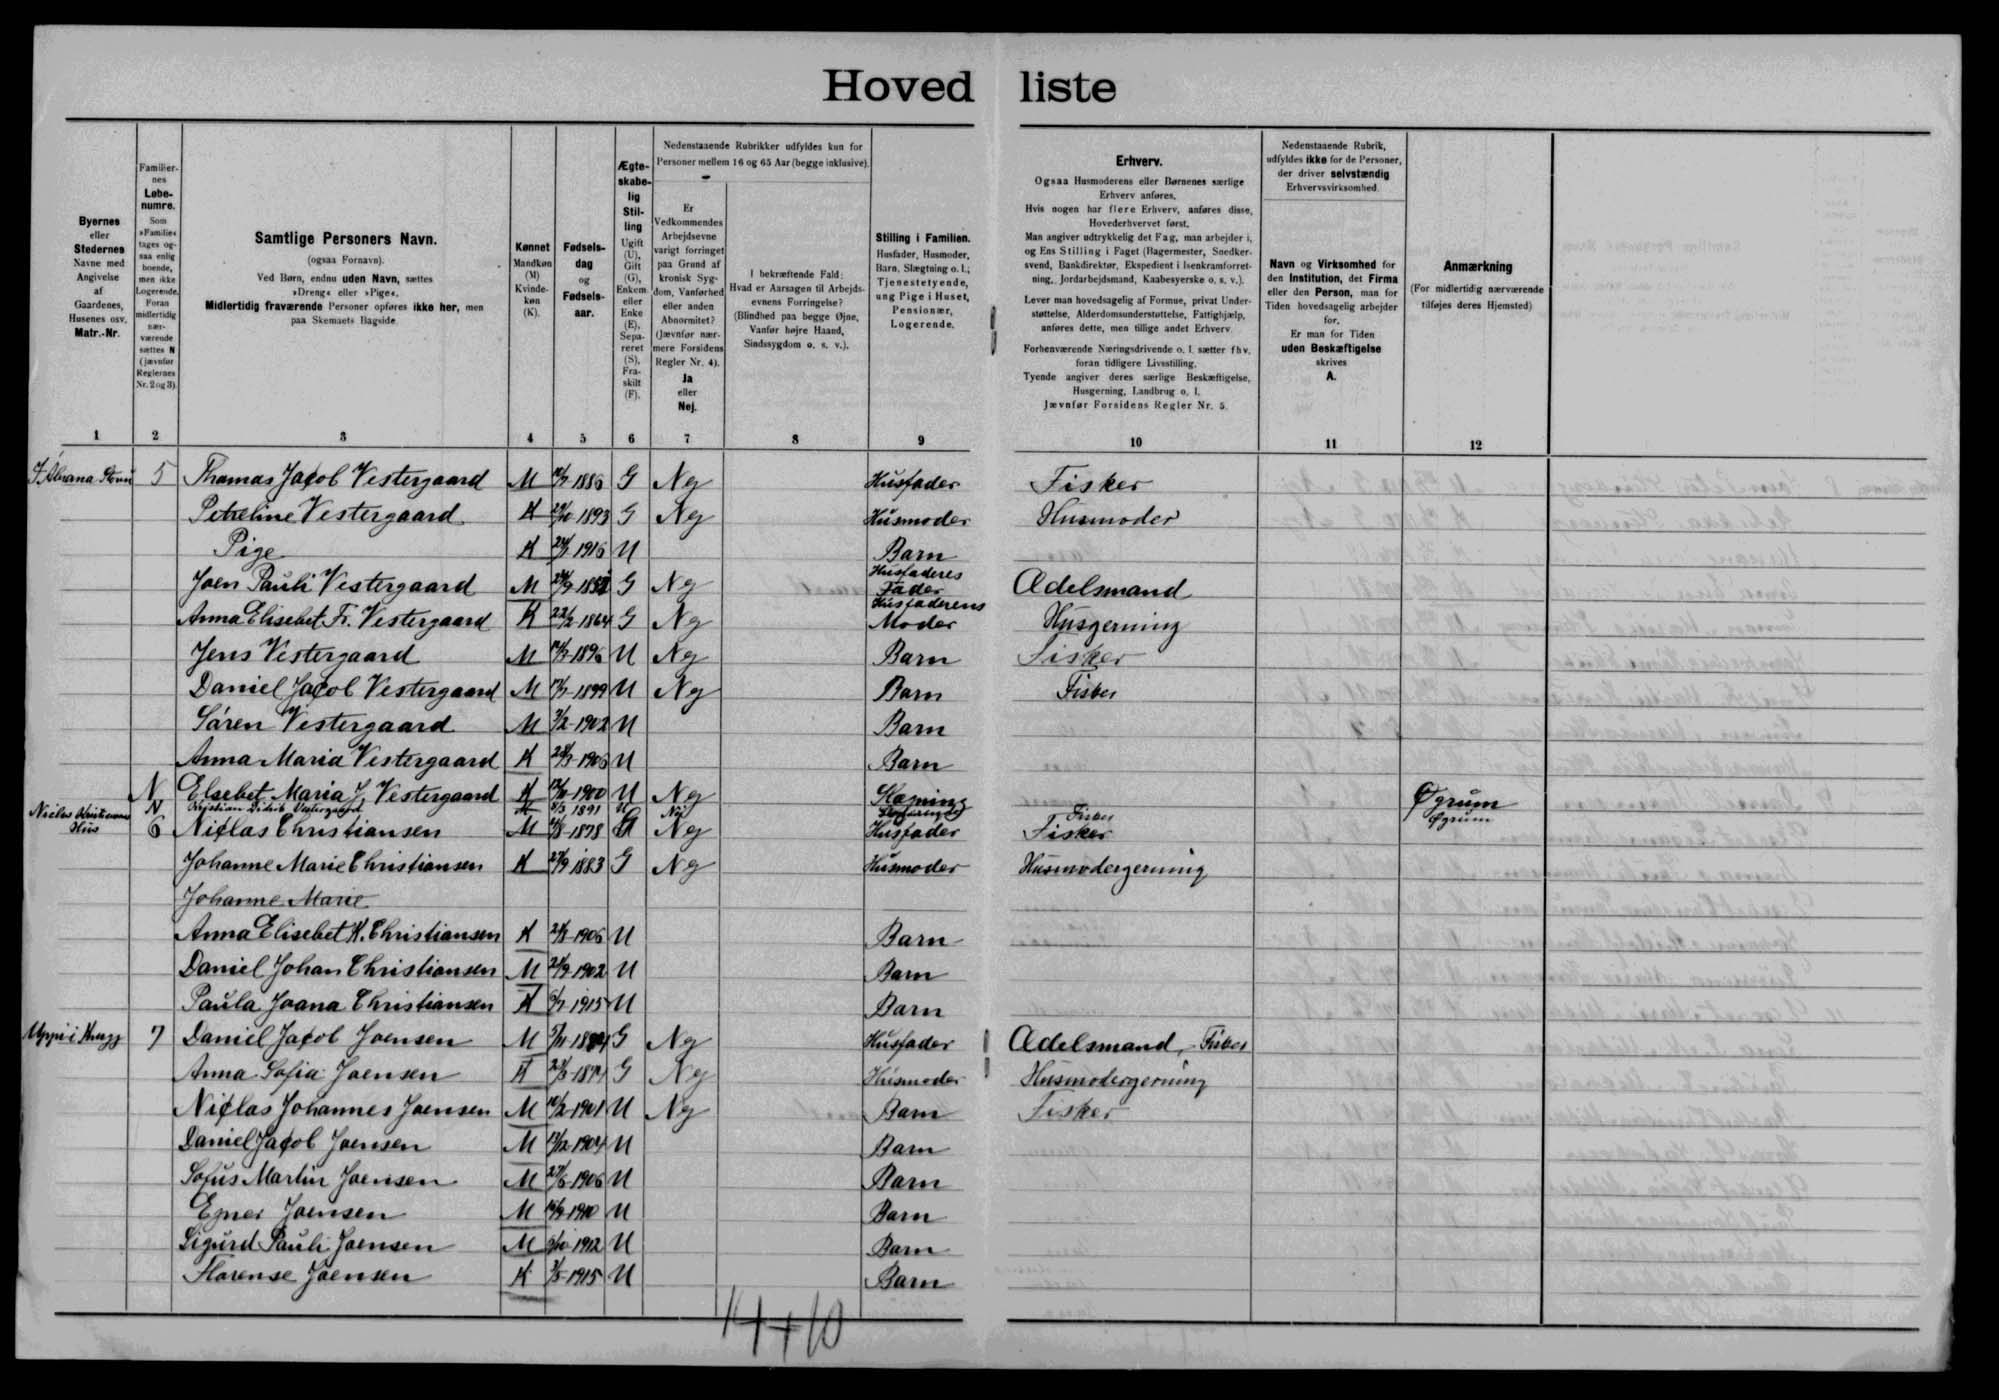 Hovedliste
Byernes eller Stedernes Navne med Angivelse af Gaardenes, Husenes osv. Matr.-Nr.
Familiernes Løbenumre. Som »Familie« tages ogsaa enlig boende, men ikke Logerende. Foran midlertidig nærværende sættes N (jævnfør Reglernes Nr. 2 og 3).
Samtlige Personers Navn.
(ogsaa Fornavn).
Ved Børn, endnu uden Navn, sættes
»Dreng« eller »Pige«.
Midlertidig fraværende Personer opføres ikke her, men
paa Skemaets Bagside.
Kønnet Mandkøn (M) Kvindekøn (K).
Fødselsdag og Fødselsaar.
Ægteskabelig Stilling Ugift (U), Gift (G), Enkem. eller Enke (E), Separeret (S), Fraskilt (F).
Nedenstaaende Rubrikker udfyldes kun for
Personer mellem 16 og 65 Aar (begge inklusive).
Er Vedkommendes Arbejdsevne varigt forringet paa Grund af kronisk Sygdom, Vanførhed eller anden Abnormitet? (Jævnfør nærmere Forsidens Regler Nr. 4). Ja eller Nej.
I bekræftende Fald: Hvad er Aarsagen til Arbejdsevnens Forringelse? (Blindhed paa begge Øjne, Vanfør højre Haand, Sindssygdom o. s. v.).
Stilling i Familien. Husfader, Husmoder, Barn, Slægtning o. l.; Tjenestetyende, ung Pige i Huset, Pensionær, Logerende.
Erhverv.
Ogsaa Husmoderens eller Børnenes særlige
Erhverv anføres.
Hvis nogen har flere Erhverv, anføres disse,
Hovederhvervet først.
Man angiver udtrykkelig det Fag, man arbejder i,
og Ens Stilling i Faget (Bagermester, Snedkersvend, Bankdirektør, Ekspedient i Isenkramforretning, Jordarbejdsmand, Kaabesyerske o. s. v.).
Lever man hovedsagelig af Formue, privat Understøttelse, Alderdomsunderstøttelse, Fattighjælp,
anføres dette, men tillige andet Erhverv.
Forhenværende Næringsdrivende o. l. sætter fhv.
foran tidligere Livsstilling.
Tyende angiver deres særlige Beskæftigelse,
Husgerning, Landbrug o. l.
Jævnfør Forsidens Regler Nr. 5.
Nedenstaaende Rubrik,
udfyldes ikke for de Personer,
der driver selvstændig
Erhvervsvirksomhed.
Navn og Virksomhed for
den Institution, det Firma
eller den Person, man for
Tiden hovedsagelig arbejder
for.
Er man for Tiden
uden Beskæftigelse
skrives
A.
Anmærkning
(For midlertidig nærværende
tilføjes deres Hjemsted)
1 2 3 4 5 6 7 8 9 10 11 12
5 Thomas Jacob Vestergaard M 1886 G Nej Husfader Fisker
Petreline Vestergaard K 1893 G Nej Husmoder Husmoder
Pige K 1916 U Barn
Joen Pauli Vestergaard M G Nej Husfaderes Fader Odelsmand
Anna Elisebet Fr. Vestergaard K 22/2-1864 G Nej Husfaderens Moder Husgerning
Jens Vestergaard M 1896 U Nej Barn Fisker
Daniel Jacob Vestergaard M 1899 U Nej Barn Fisker
Sören Vestergaard M 1902 U Barn
Anna Maria Vestergaard K 1906 U Barn
N Elsebet Maria J. Vestergaard K 1900 U Nej Øgrum
N Kristian Didrik Vestergaard M 1891 U Nej Fisker Øgrum
Niclas Kristiansens Hus 6 Niclas Christiansen M 1878 G Nej Husfader Fisker
Johanne Marie Christiansen K 1883 G Nej Husmoder Husmodergerning
Johanne Marie
Anna Elisebet K. Christiansen K 1906 U Barn
Daniel Johan Christiansen M 1902 U Barn
Paula Joana Christiansen K 1915 U Barn
7 Daniel Jacob Joensen M G Nej Husfader Odelsmand, Fisker
Anna Sofia Joensen K 1874 G Nej Husmoder Husmodergerning
Niclas Johannes Joensen M 1901 U Nej Barn Fisker
Daniel Jacob Joensen M 1904 U Barn
Sofus Martin Joensen M 1906 U Barn
Ejner Joensen M 1910 U Barn
Sigurd Pauli Joensen M 1912 U Barn
Florense Joensen K 1915 U Barn
14+10